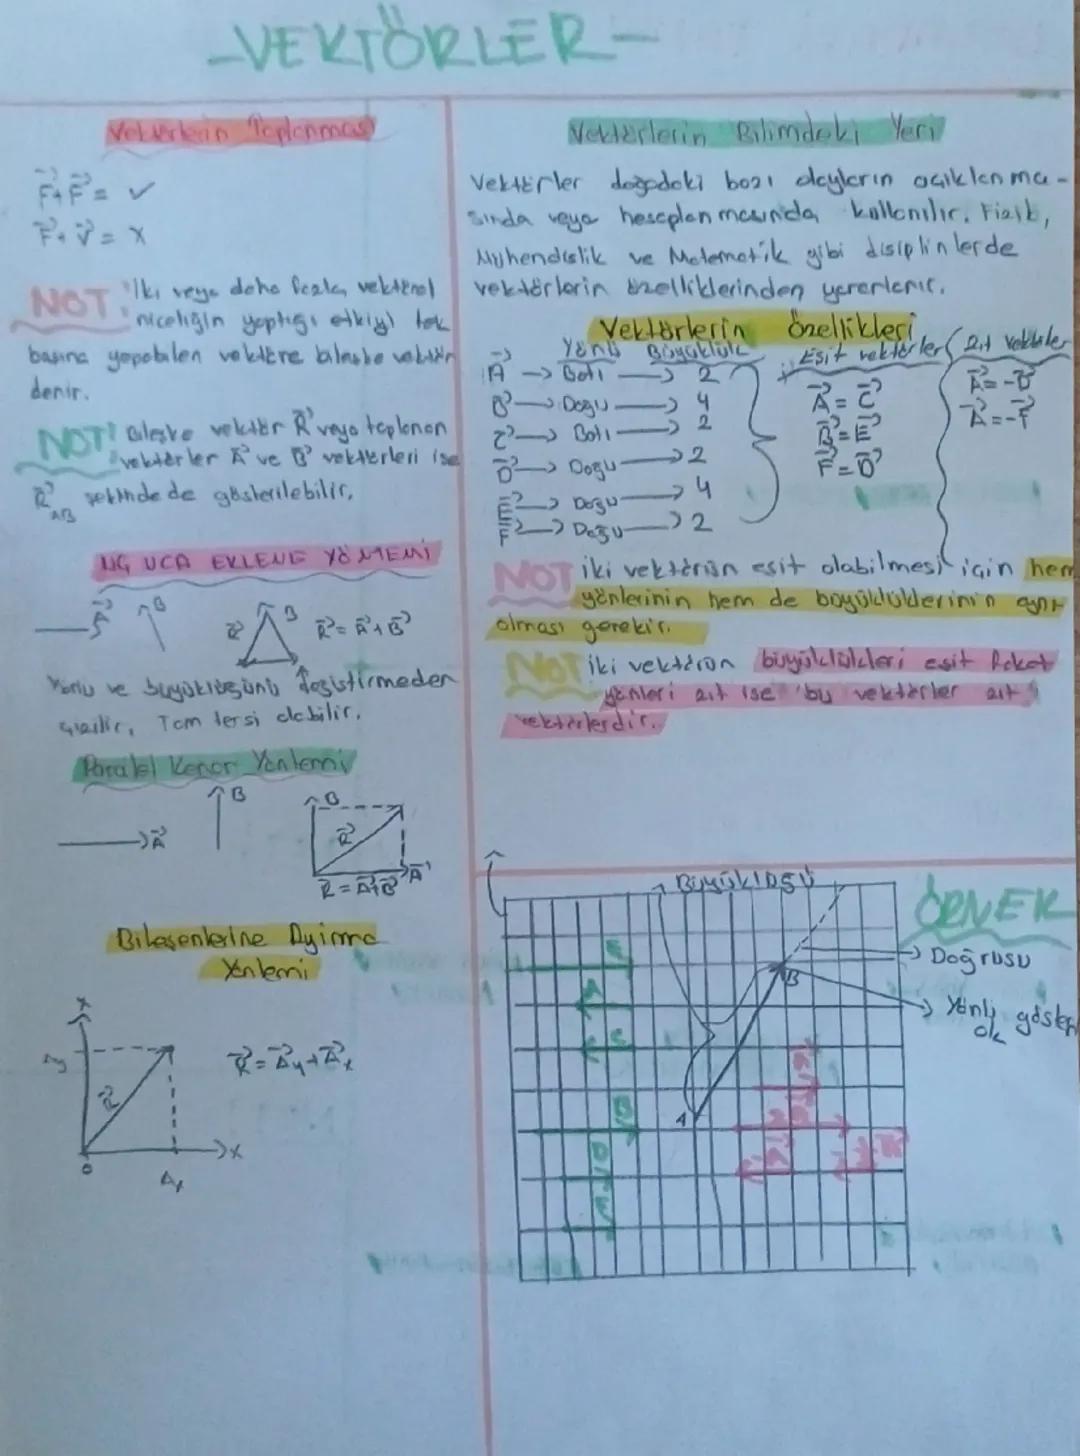 -VEKTÖRLER-
Vektörlerin Toplanması
F+F = ✓
F+V = X
NOT: İki veya daha fazla vektörel
niceliğin yaptığı etkiyi tek
başına yapabilen vektöre bileşke vektör
denir.
NOT! Bileşke vektör R veya toplanan
vektörler A ve B vektörleri ise
R AB şeklinde de gösterilebilir.
UÇ UCA EKLEME YÖNTEMİ
A B R B R = A + B
Yönü ve büyüklüğünü değiştirmeden
çizilir, Tam tersi olabilir.
Paralel Kenar Yöntemi
A B B R A
R = A+B
Bileşenlerine Ayırma
Yöntemi
R = Ay + Ax
Ay R
O Ax X
Vektörlerin Bilimdeki Yeri
Vektörler doğadaki bazı olayların açıklanma-
sında veya hesaplanmasında kullanılır. Fizik,
Mühendislik ve Matematik gibi disiplinlerde
vektörlerin özelliklerinden yararlanır.
Vektörlerin Özellikleri
Yönü Büyüklük Eşit vektörler Zıt Vektörler
A → Batı → 2 A = C A = -D
B → Doğu → 4 B = E A = -F
C → Batı → 2 F = D
D → Doğu → 2
E → Doğu → 4
F → Doğu → 2
NOT İki vektörün eşit olabilmesi için hem
yönlerinin hem de büyüklüklerinin aynı
olması gerekir.
NOT İki vektörün büyüklükleri eşit fakat
yönleri zıt ise bu vektörler zıt
vektörlerdir.
Büyüklüğü
ÖRNEK
Doğrusu
B
Yönü göster
ok
A